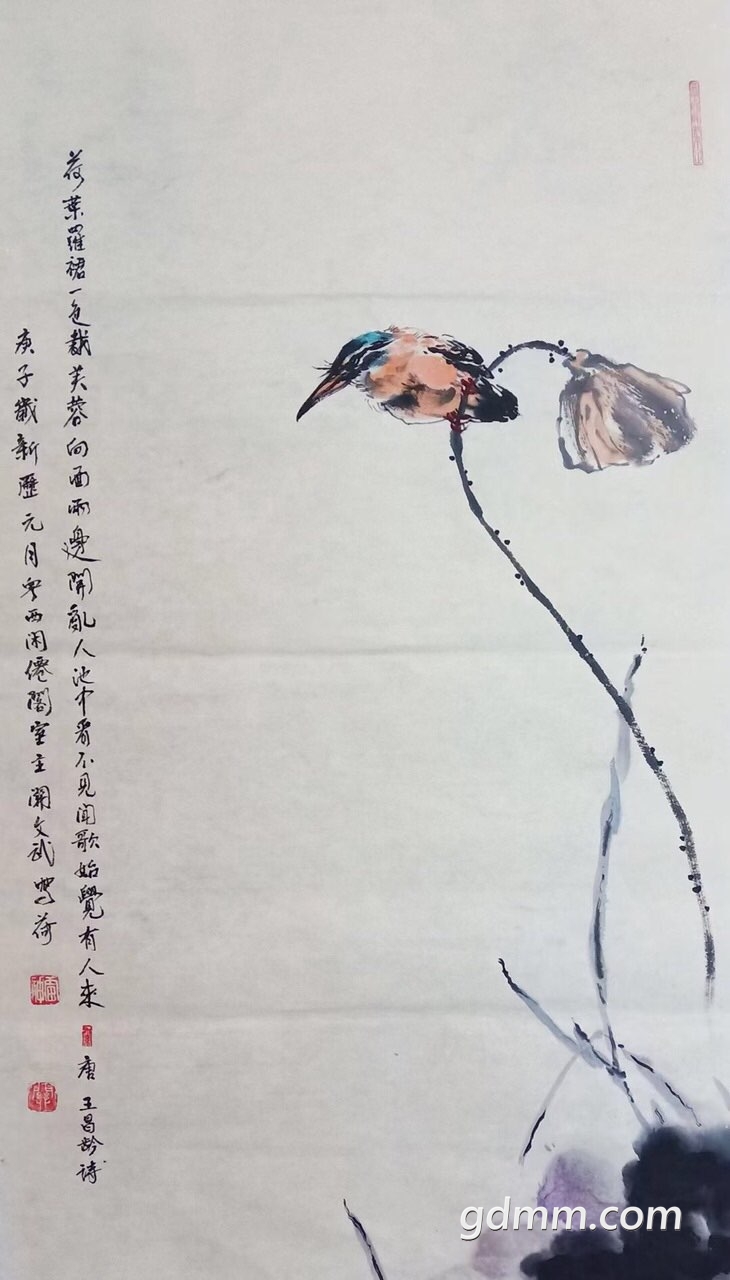 荷葉羅裙一色裁芙蓉向面兩邊開亂入池中看不見聞歌始覺有人來
唐 王昌齡詩
庚子歲新歷元月粵西闲僊閣室主關文武寫荷
gdmm.com